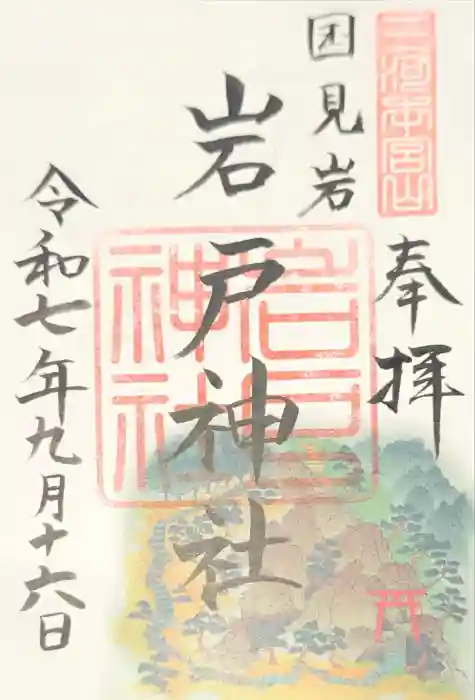 三河本宮山
奉拝
国見岩
岩戸神社
岩戸神社
令和七年九月十六日